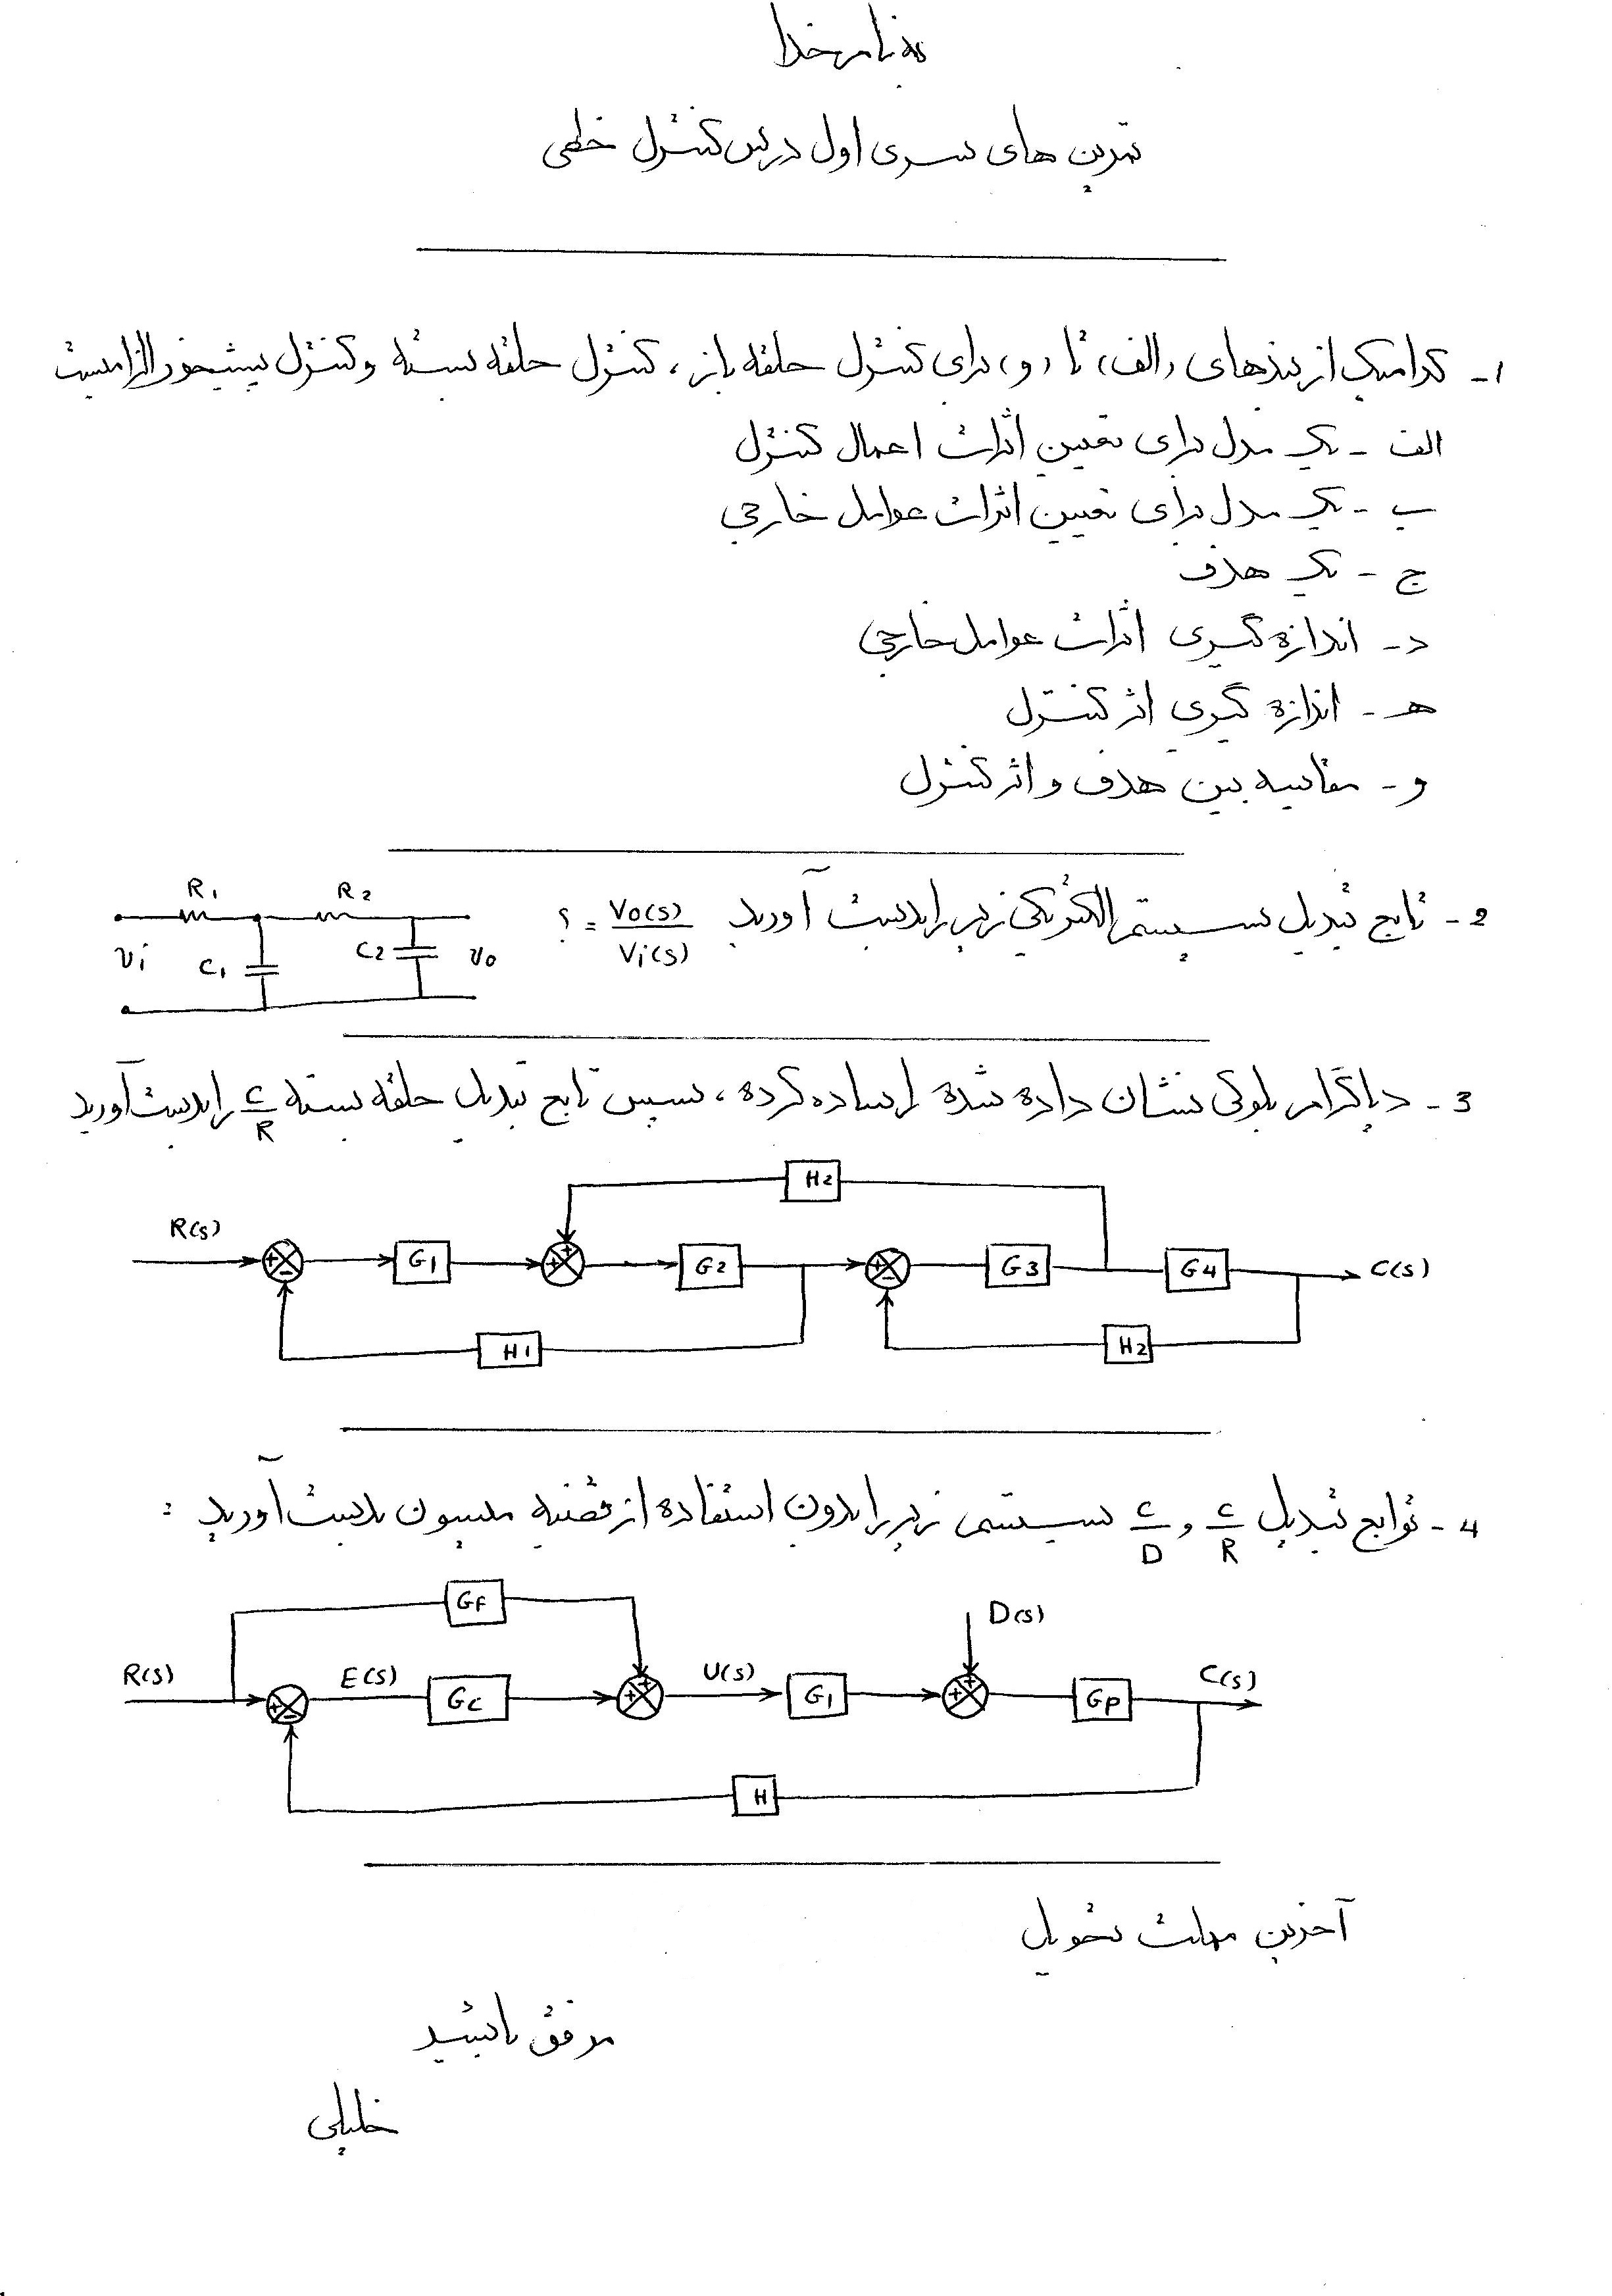 به نام خدا
تمرین های سری اول درس کنترل خطی
1- کدامیک از بندهای (الف) تا (و) برای کنترل حلقه باز، کنترل حلقه بسته و کنترل پیشخور الزامیست
الف - یک مدل برای تعیین اثرات اعمال کنترل
ب - یک مدل برای تعیین اثرات عوامل خارجی
ج - یک هدف
د - اندازه گیری اثرات عوامل خارجی
هـ - اندازه گیری اثر کنترل
و - مقایسه بین هدف و اثر کنترل
2- تابع تبدیل سیستم الکتریکی زیر را بدست آورید Vo(s)/Vi(s) = ؟
R1 R2
vi C1 C2 vo
3- دیاگرام بلوکی نشان داده شده را ساده کرده، سپس تابع تبدیل حلقه بسته C/R را بدست آورید
H2
R(s) + - G1 + + G2 + - G3 G4 C(s)
H1 H2
4- توابع تبدیل C/R و C/D سیستم زیر را بدون استفاده از قضیه میسون بدست آورید :
GF
D(s)
R(s) + - E(s) Gc + + U(s) G1 + + Gp C(s)
H
آخرین مهلت تحویل
موفق باشید
خلیلی